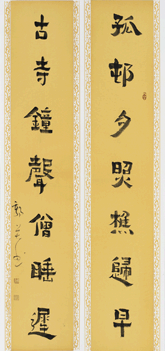 孤邨夕照樵歸早
古寺鐘聲僧睡遲